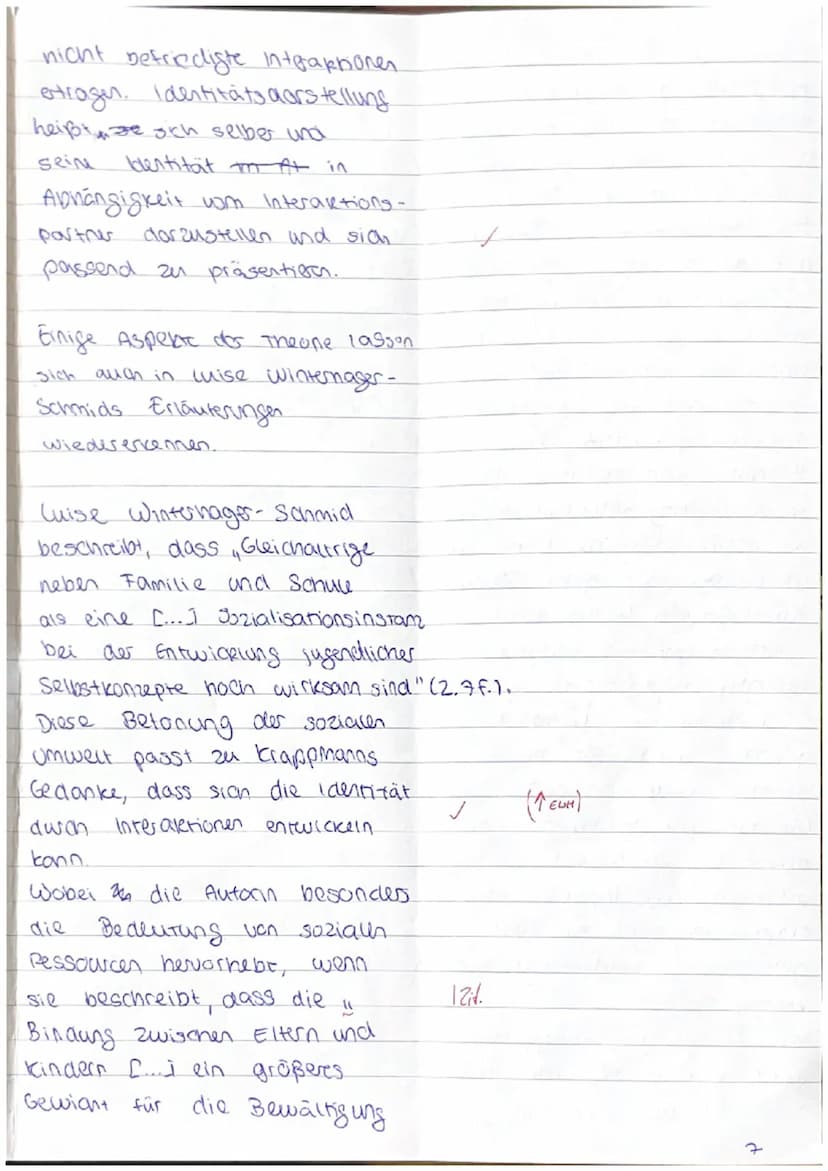 nicht befriedigte Interaktionen
ertragen. Identitätsdarstellung
heißt, sich selber und
seine Identität in
Abhängigkeit vom Interaktions-
partner darzustellen und sich
passend zu präsentieren.
Einige Aspekte der Theorie lassen
sich auch in Luise Winterhager-
Schmids Erläuterungen
wiedererkennen.
Luise Winterhager-Schmid
beschreibt, dass „Gleichaltrige
neben Familie und Schule
als eine [...] Sozialisationsinstanz
bei der Entwicklung jugendlicher
Selbstkonzepte hoch wirksam sind" (Z.7f.).
Diese Betonung der sozialen
Umwelt passt zu Krappmanns
Gedanke, dass sich die Identität
✓ (↑ EWH)
durch Interaktionen entwickeln
kann.
Wobei die Autorin besonders
die Bedeutung von sozialen
Ressourcen hervorhebt, wenn
sie beschreibt, dass die „ | Zit.
Bindung zwischen Eltern und
Kindern [...] ein größeres
Gewicht für die Bewältigung
7